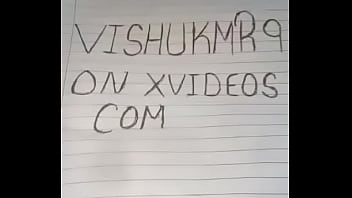 VISHUKMR9
ON XVIDEOS
COM